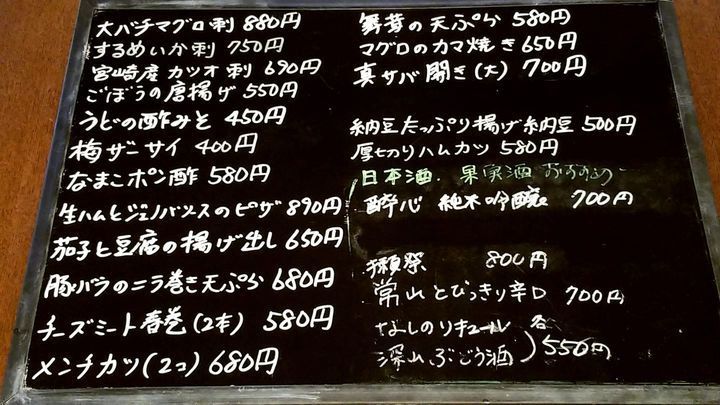 大バチマグロ刺 880円
するめいか刺 750円
宮崎産 カツオ刺 690円
ごぼうの唐揚げ 550円
うどの酢みそ 450円
梅ザーサイ 400円
なまこポン酢 580円
生ハムとジェノバソースのピザ 890円
茄子と豆腐の揚げ出し 650円
豚バラのニラ巻き天ぷら 680円
チーズミート春巻(2本) 580円
メンチカツ(2コ) 680円
舞茸の天ぷら 580円
マグロのカマ焼き 650円
真サバ開き(大) 700円
納豆たっぷり揚げ納豆 500円
厚切りハムカツ 580円
日本酒、果実酒 おすすめ
酔心 純米吟醸 700円
獺祭 800円
常山 とびっきり辛口 700円
なしのリキュール 各
深山ぶどう酒 ) 550円